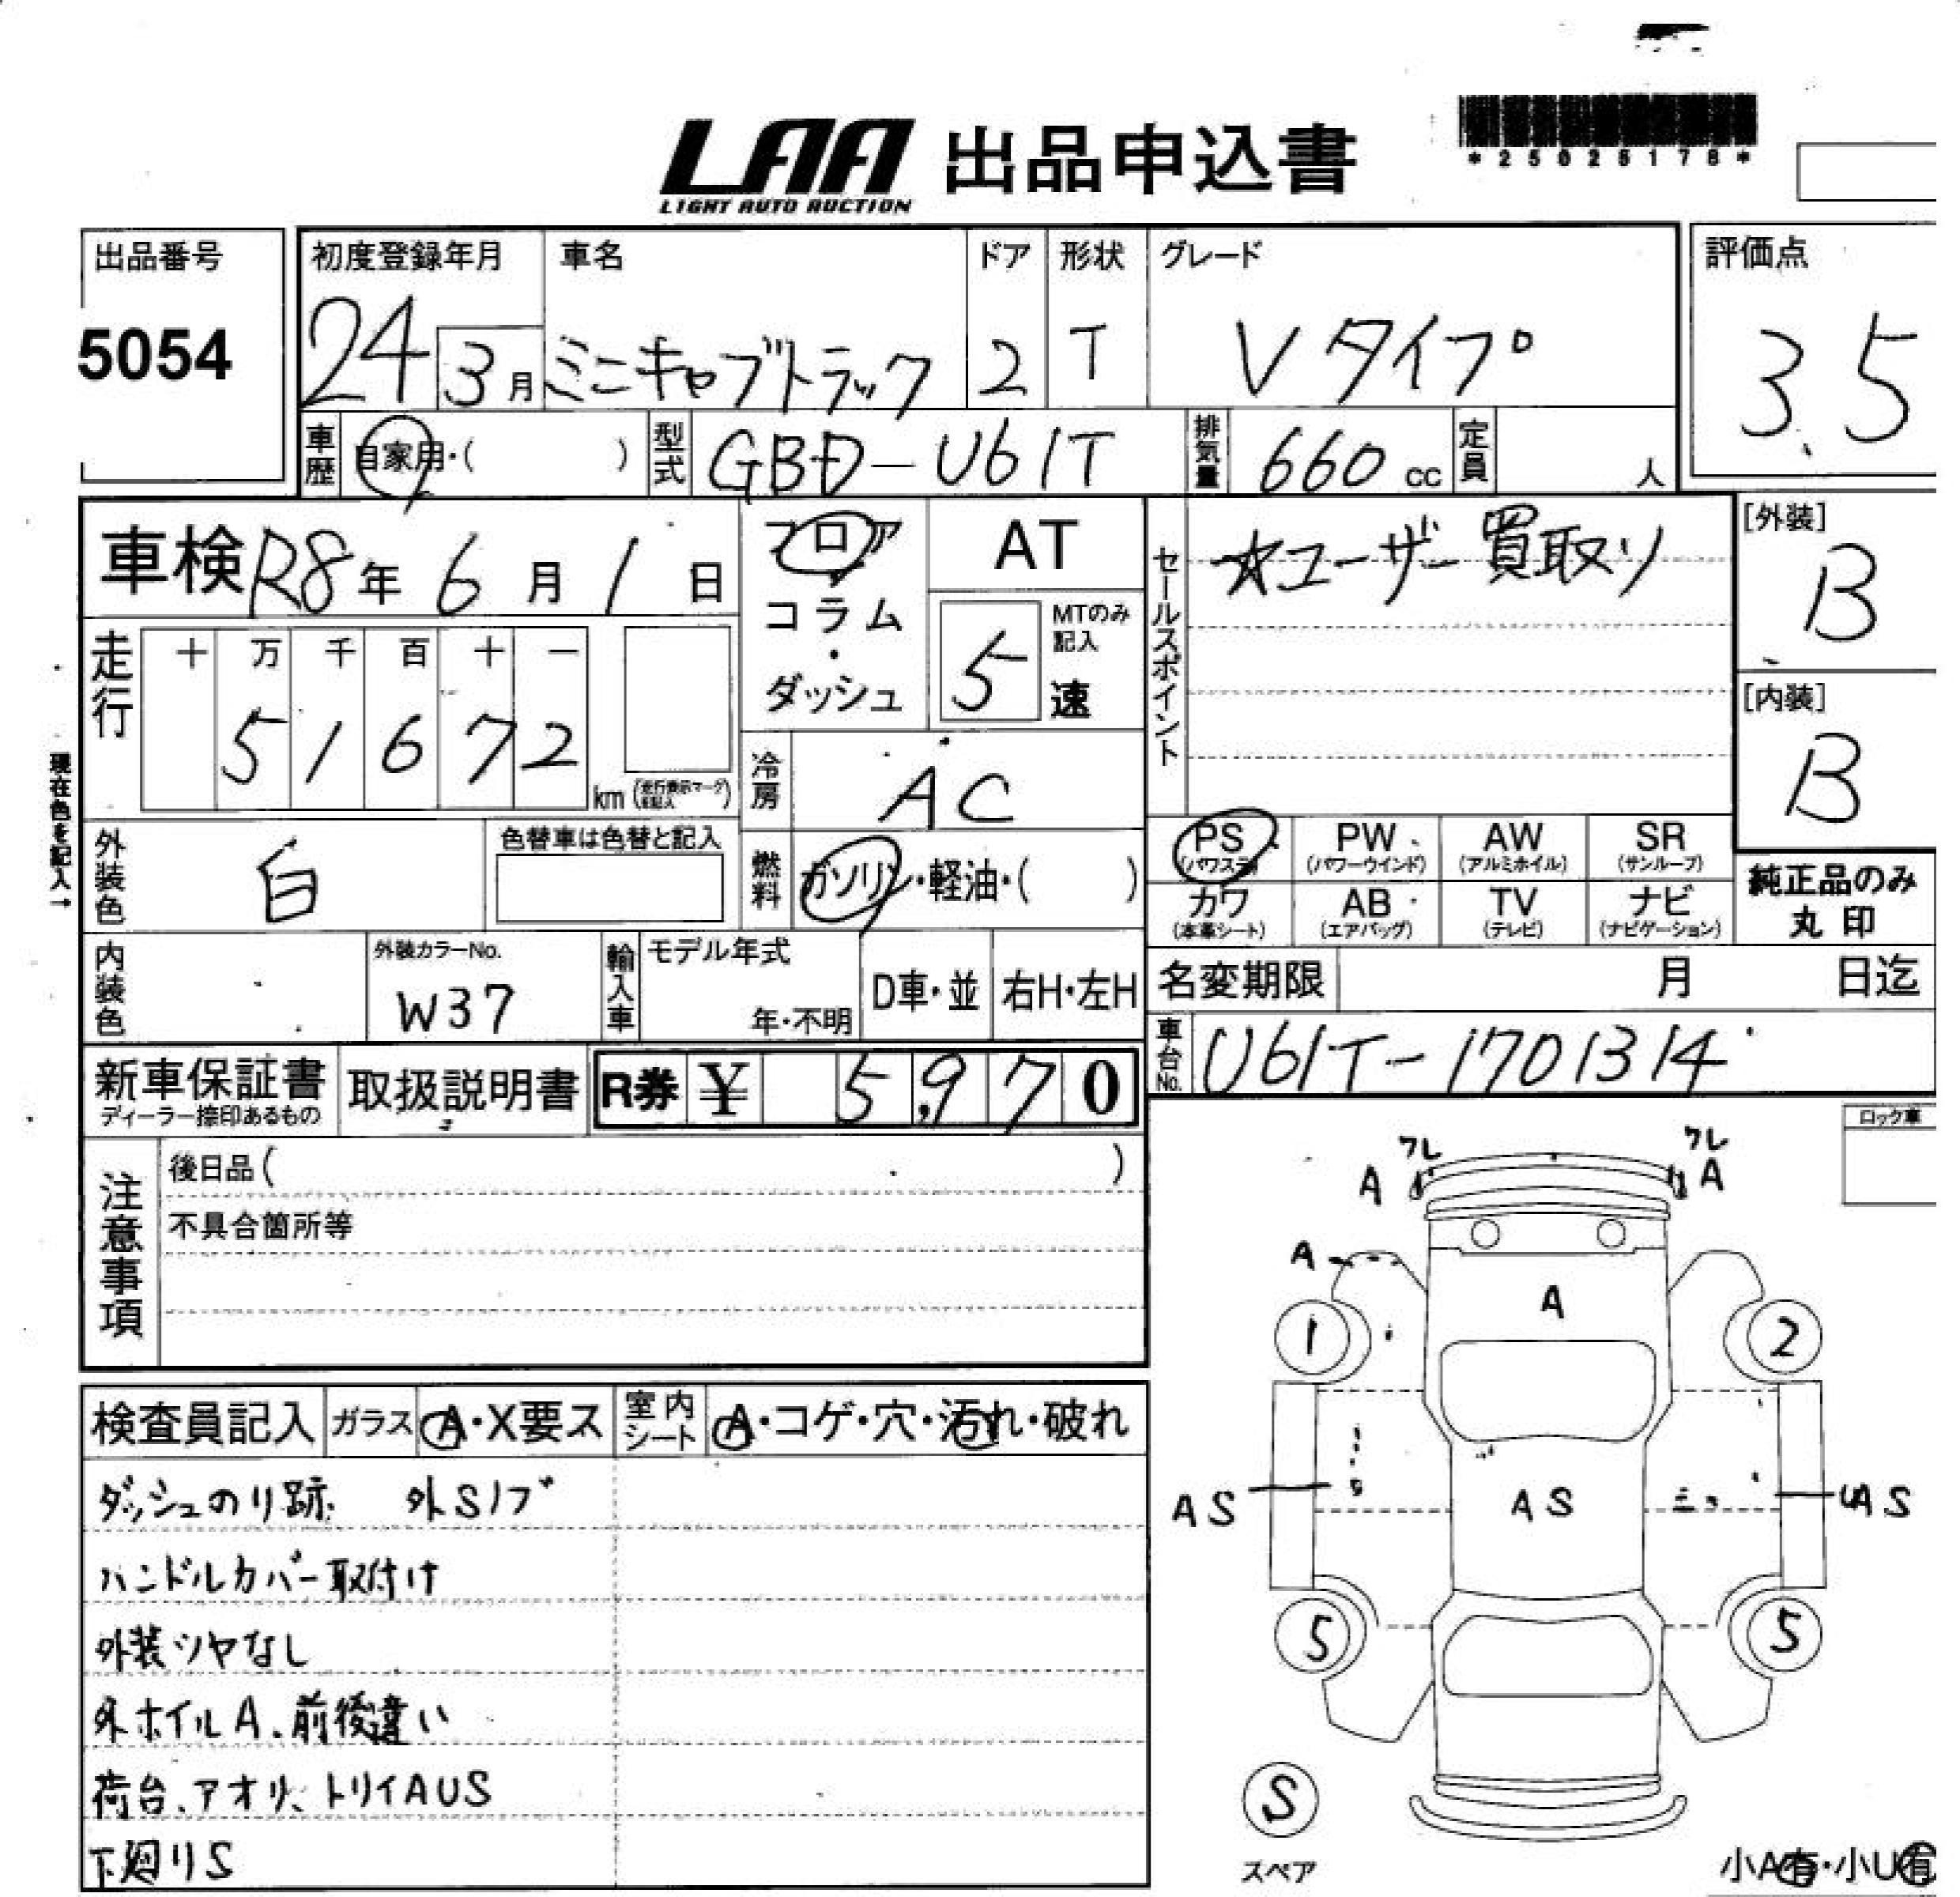 LAA 出品申込書
LIGHT AUTO AUCTION
*25025178*
出品番号
5054
初度登録年月
24 3月
車名
ミニキャブトラック
ドア
2
形状
T
グレード
Vタイプ
評価点
3.5
車歴 自家用・( )
型式 GBD-U61T
排気量 660 cc
定員 人
車検 R8年 6月 1日
フロア・コラム・ダッシュ
AT
5 MTのみ記入
速
セールスポイント
☆ユーザー買取り
[外装]
B
[内装]
B
走行
十 万 千 百 十 一
5 1 6 7 2
km (走行表示マーク未記入)
冷房 AC
現在色を記入→
外装色 白
色替車は色替と記入
燃料 ガソリン・軽油・( )
PS (パワステ)
PW (パワーウインド)
AW (アルミホイル)
SR (サンルーフ)
カワ (本革シート)
AB (エアバッグ)
TV (テレビ)
ナビ (ナビゲーション)
純正品のみ
丸印
内装色
外装カラーNo.
W37
輸入車
モデル年式
年・不明
D車・並
右H・左H
名変期限 月 日迄
車台No. U61T-1701314
新車保証書
ディーラー捺印あるもの
取扱説明書
R券 ¥ 5,970
注意事項
後日品( )
不具合箇所等
ロック車
ワレ ワレ
A A
A
A
1 2
AS AS UAS
5 5
S
スペア
小A有・小U有
検査員記入
ガラス A・X要ス
室内シート A・コゲ・穴・汚れ・破れ
ダッシュのり跡. 外Sノブ
ハンドルカバー取付け
外装ツヤなし
外ホイルA、前後違い
荷台、アオリ、トリイAUS
下廻りS